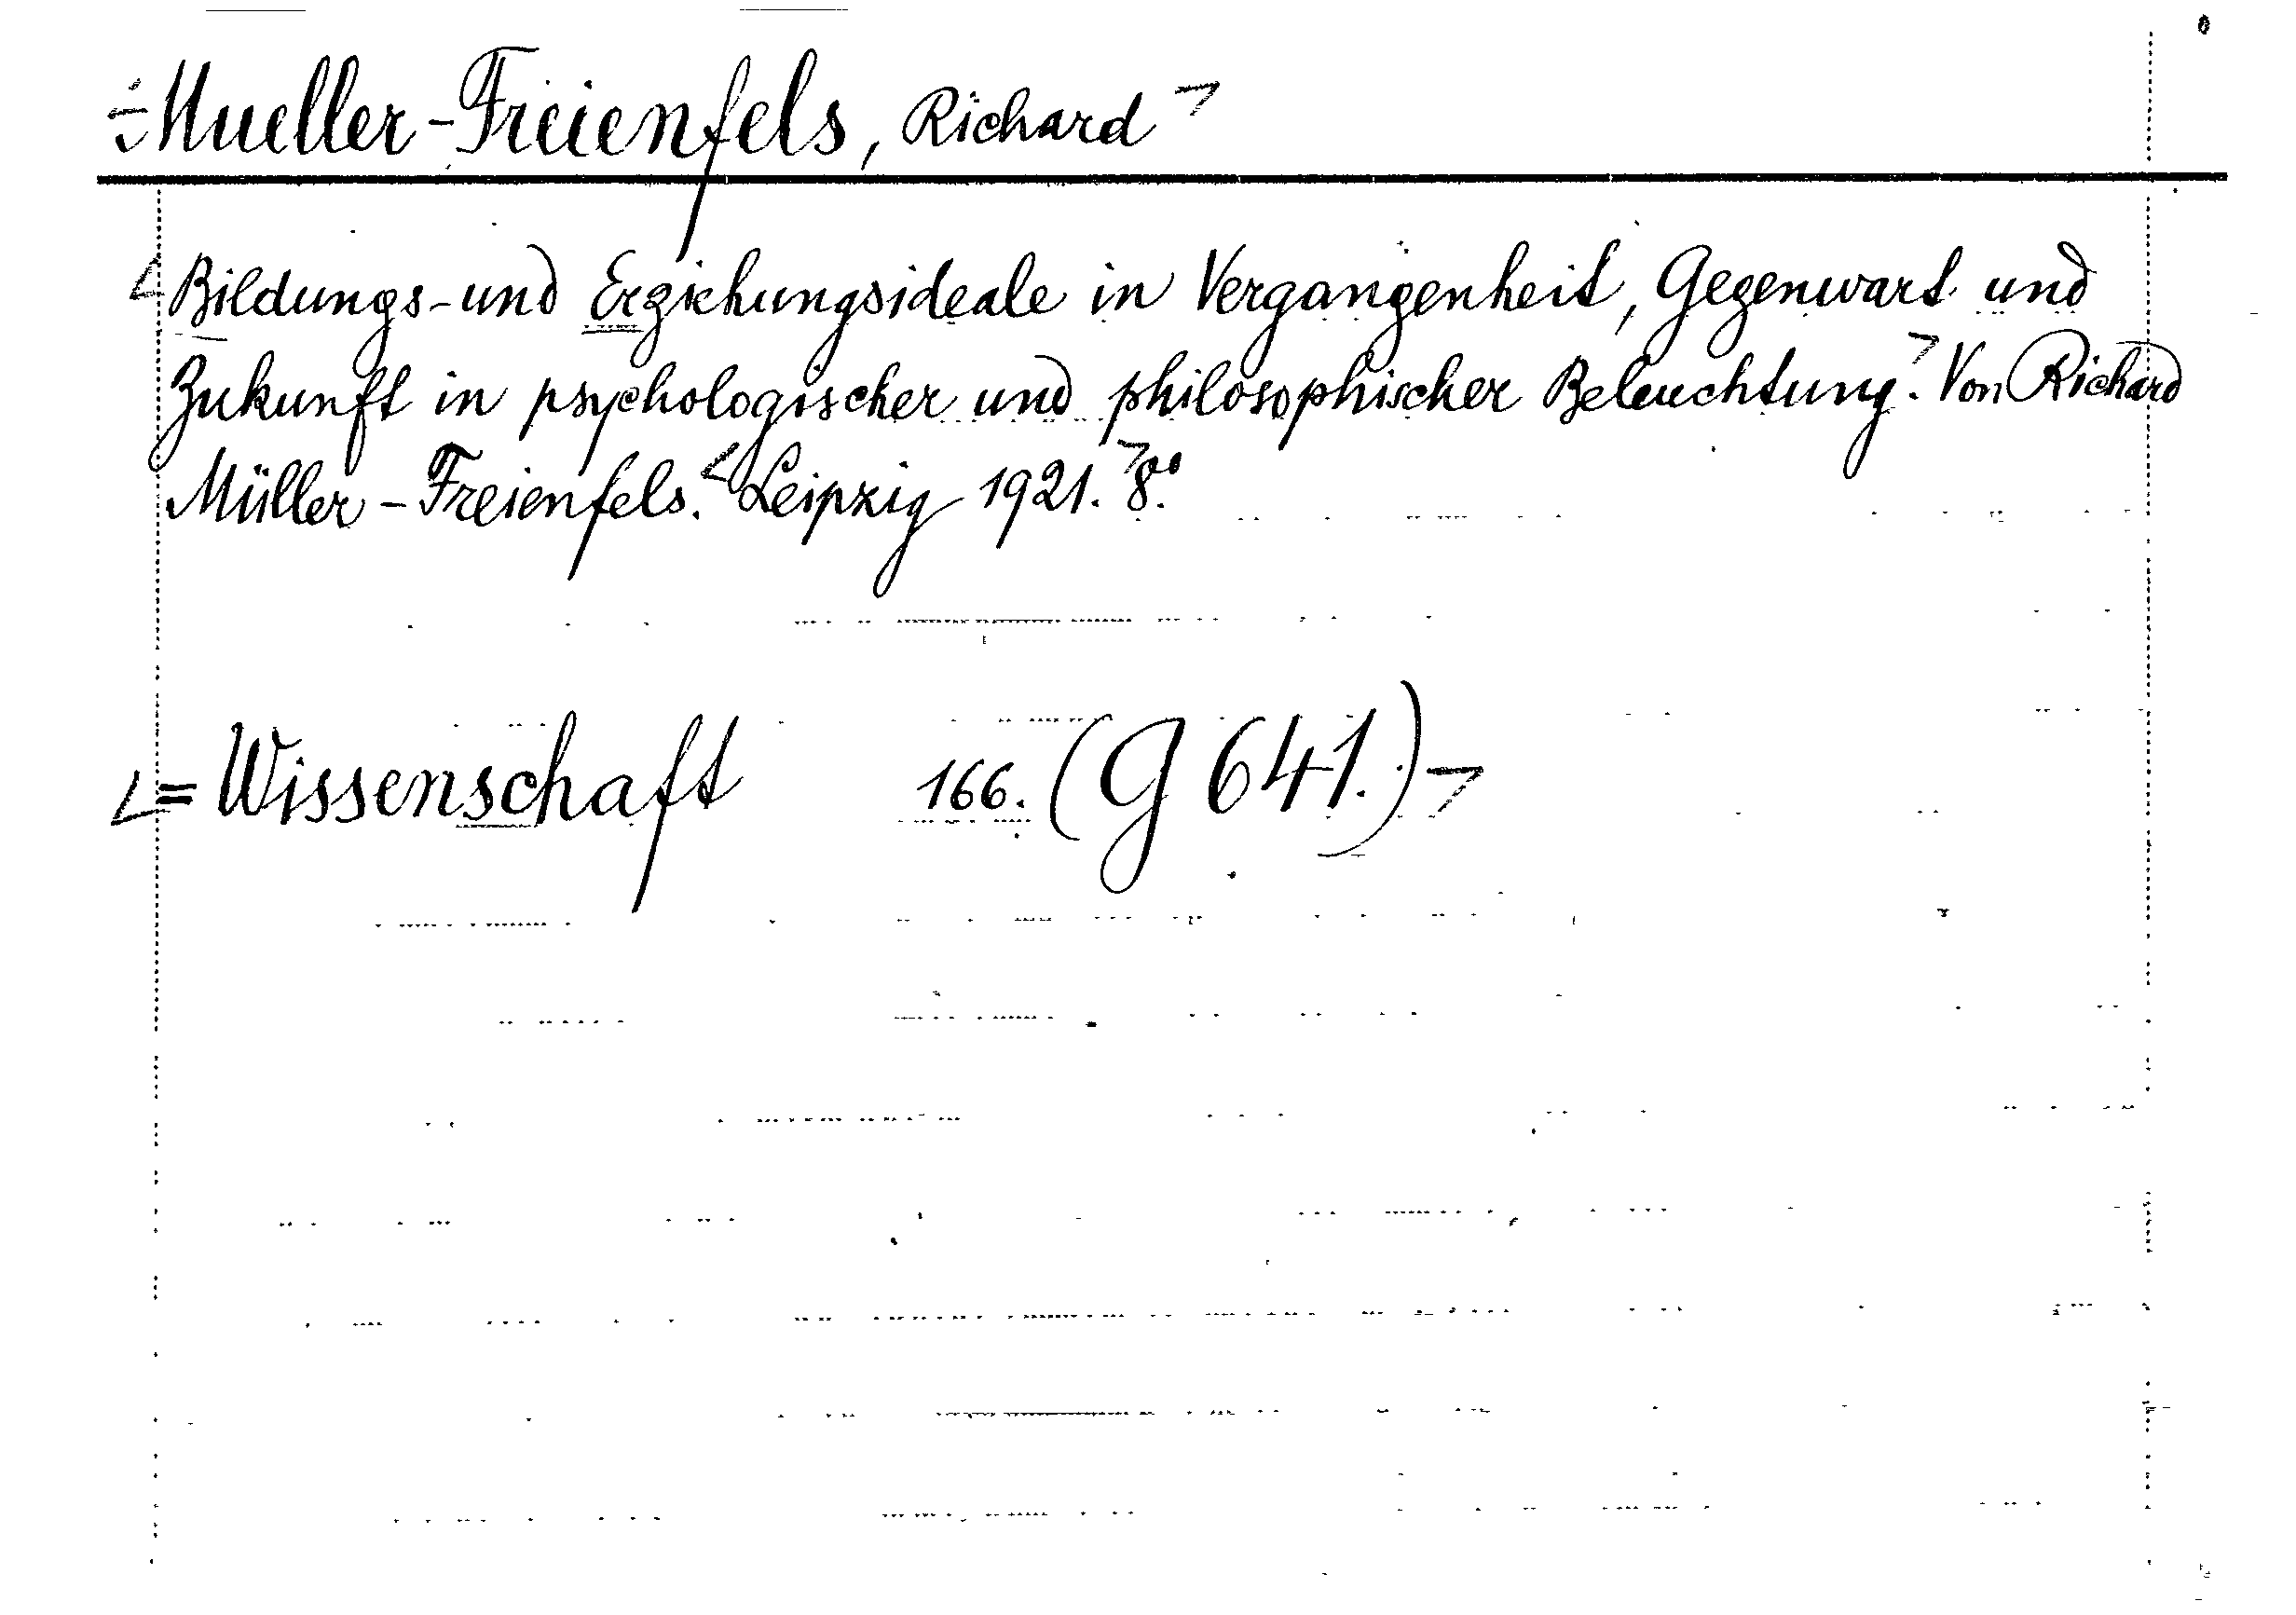 ÷Mueller-Freienfels, Richard>
<Bildungs-und Erziehungsideale in Vergangenheit, Gegenwart und
Zukunft in psychologischer und philosophischer Beleuchtung.> Von Richard
Müller-Freienfels.<Leipzig 1921.>8º.
<= Wissenschaft 166. (G 641.)>